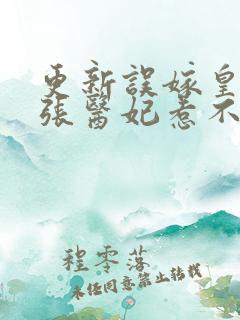 更新誤嫁皇
張醫妃惹不
程零落
未经同意禁止转载